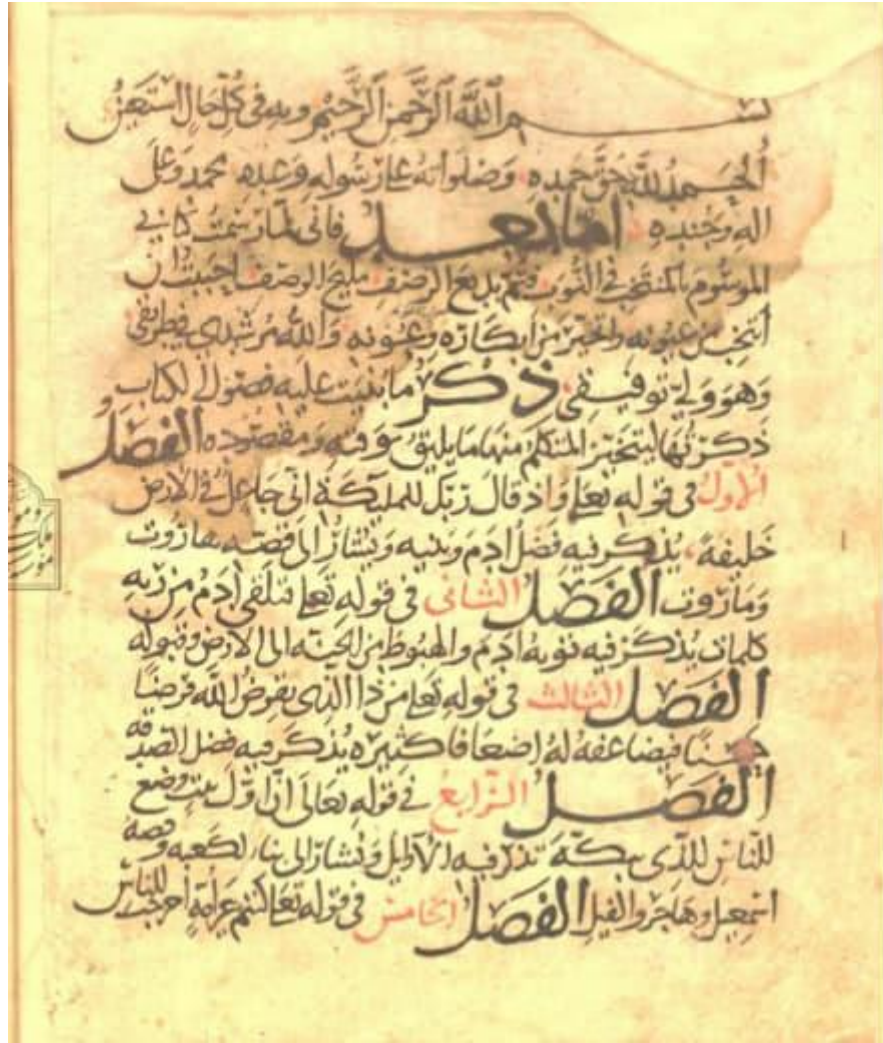 بسم الله الرحمن الرحيم وبه في كل حال استعين
الحمد لله حق حمده وصلواته على رسوله وعبده محمد وعلى
اله وجنده اما بعد فاني لما رسمت كتابي
الموسوم بالمنتخب في النوب فتم بديع الرصف مليح الوصف احببت ان
انتخب من عيونه واتخير من ابكاره وعونه والله مرشدي في طريقي
وهو ولي توفيقي ذكر ما بنيت عليه فصول الكتاب
ذكرتها ليتخير المتكلم منها ما يليق بوقته ومقصوده الفصل
الاول في قوله تعلى واذ قال ربك للمليكة اني جاعل في الارض
خليفة يذكر فيه فضل ادم وبنيه ويشار الى قصه هاروت
وماروت الفصل الثاني في قوله تعلى فتلقى ادم من ربه
كلمات يذكر فيه توبة ادم والهبوط من الجنه الى الارض وقبوله
الفصل الثالث في قوله تعلى من ذا الذي يقرض الله قرضا
حسنا فيضاعفه له اضعافا كثيره يذكر فيه فضل الصدقه
الفصل الرابع في قوله تعالى ان اول بيت وضع
للناس للذي ببكة يذكر فيه الاوايل ويشار الى بناء الكعبه وقصه
اسمعيل وهاجر والفيل الفصل الخامس في قوله تعالى كنتم خير امة اخرجت للناس